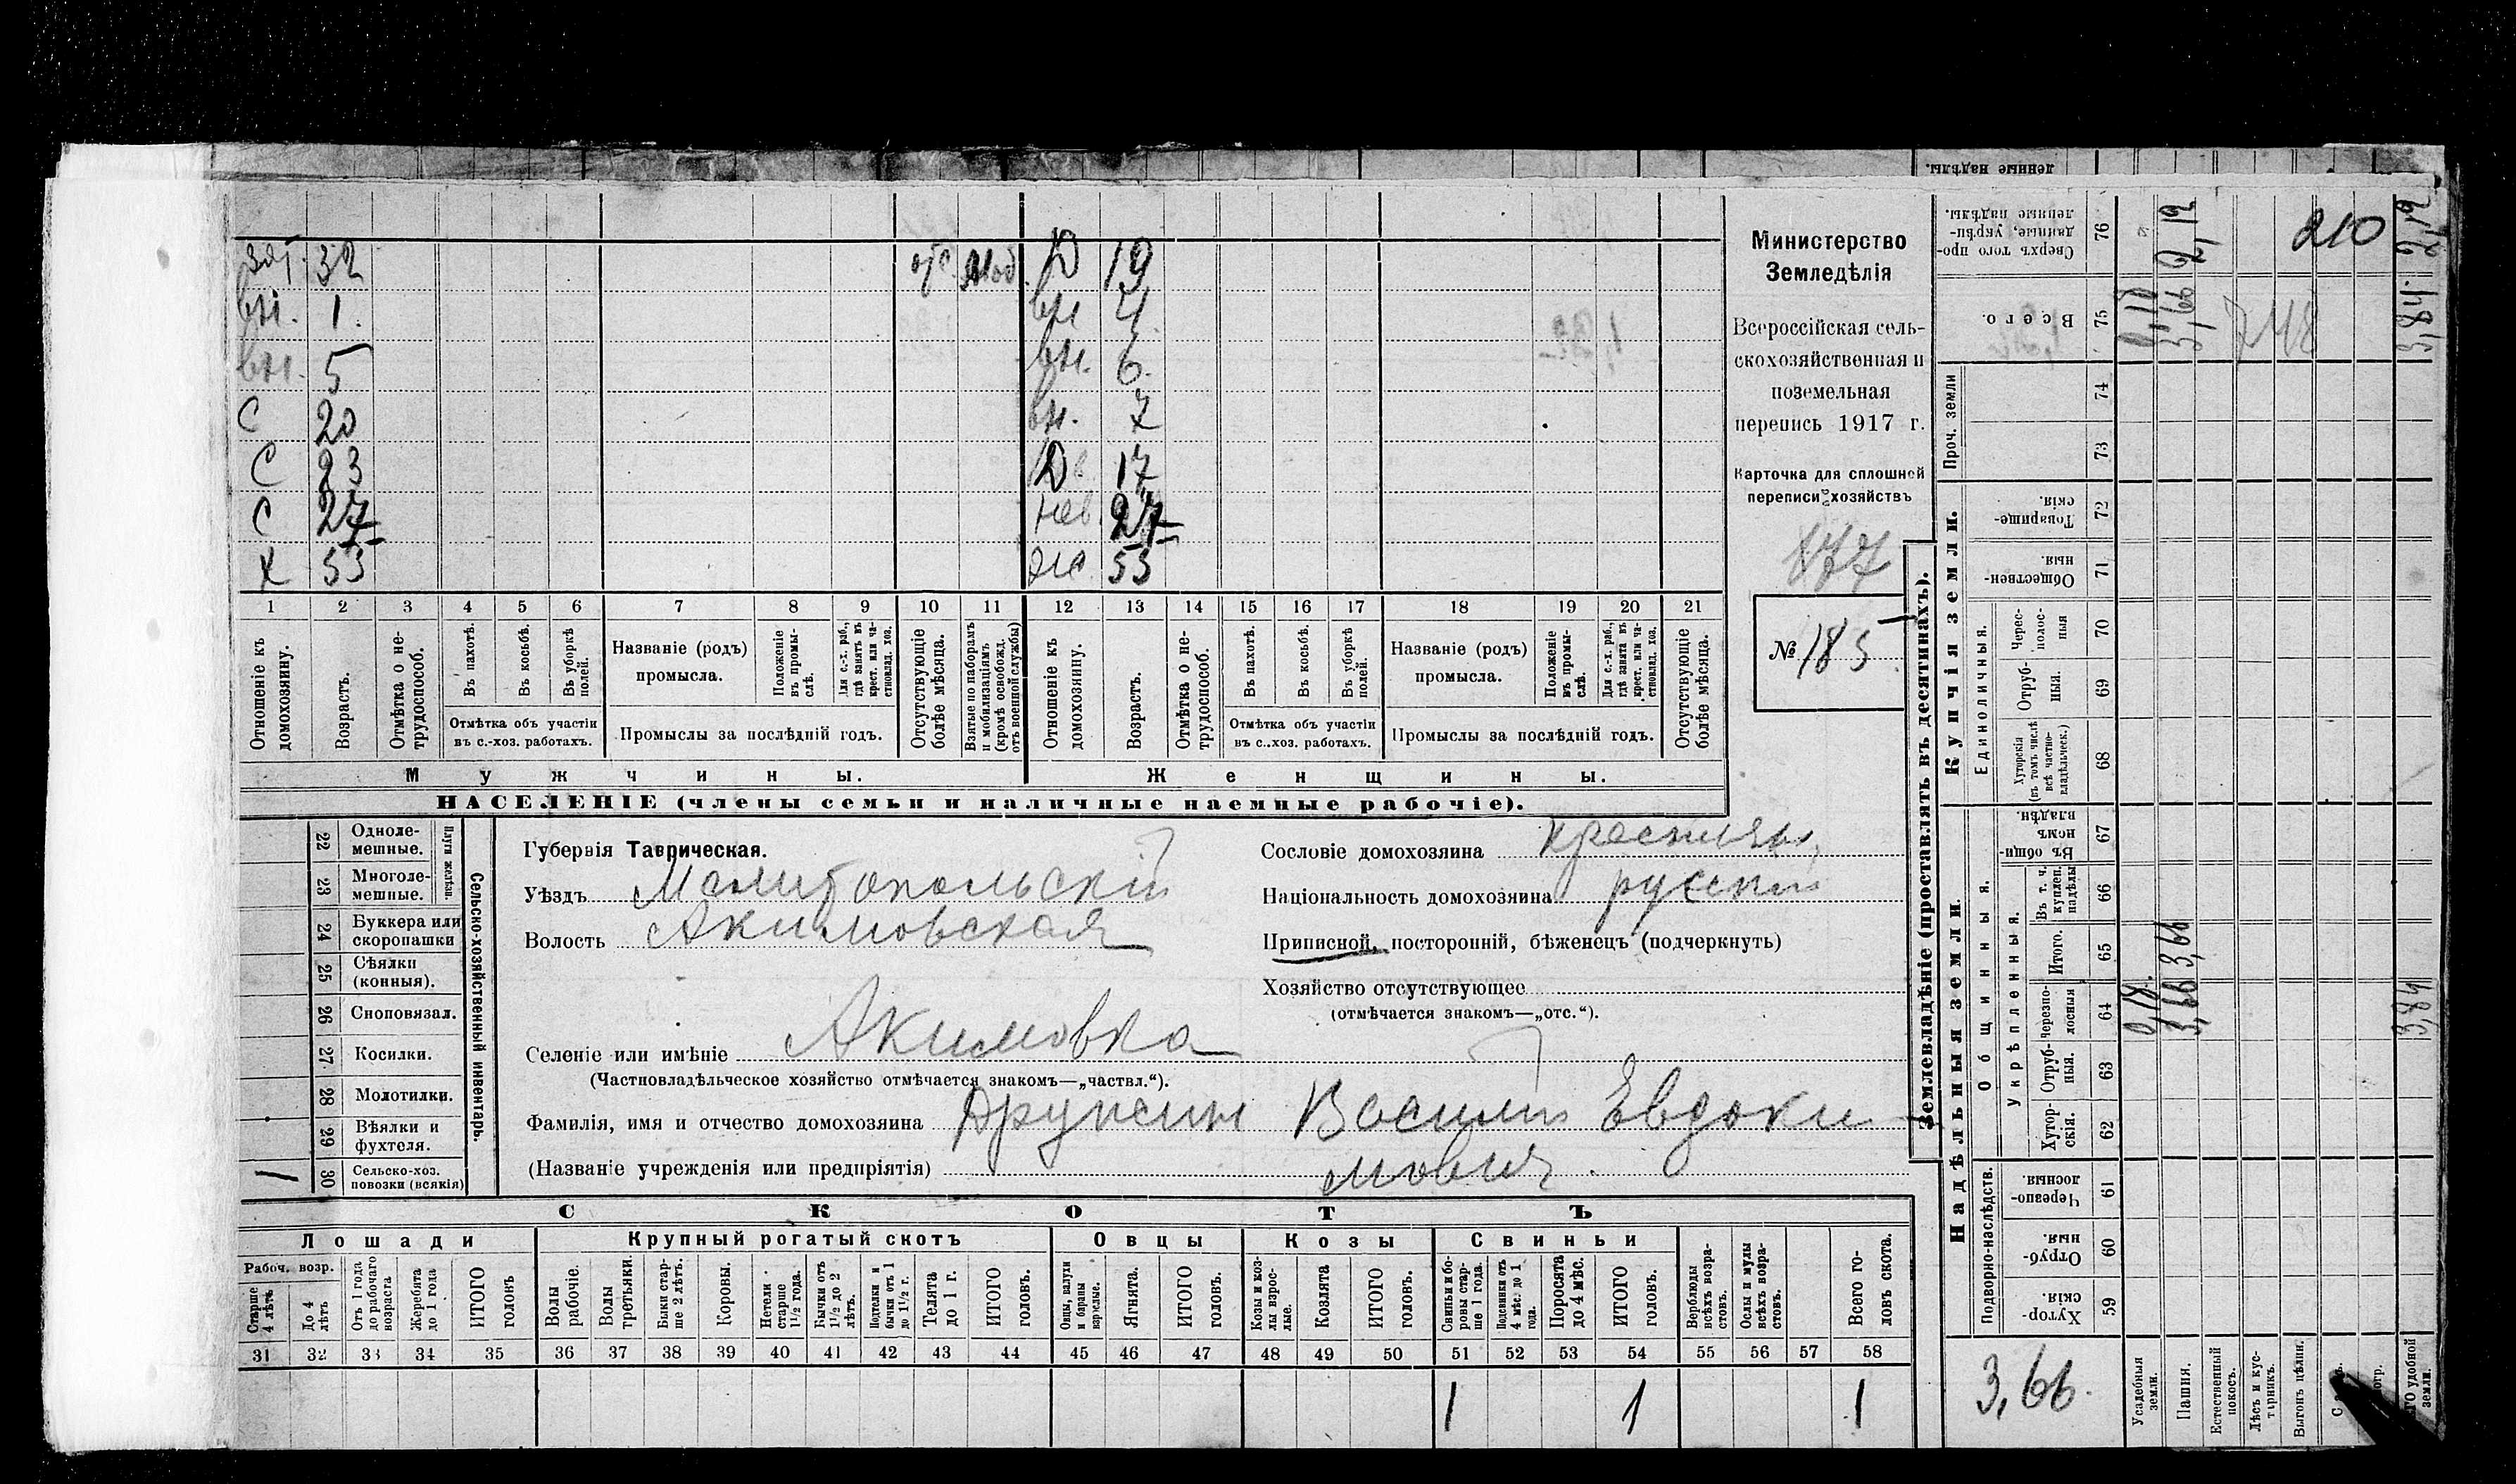 денные надѣлы.
зят. 32 отс. Моб. Д 19
вн. 1. вн 4.
вн. 5 вн. 6.
С 20 вн. 7
С 23 Д 17
С 27 нев. 27
Х 53 ж 53
1 2 3 4 5 6 7 8 9 10 11 12 13 14 15 16 17 18 19 20 21
Отношеніе къ домохозяину.
Возрастъ.
Отмѣтка о не-
трудоспособ.
Въ пахотѣ.
Въ косьбѣ.
Въ уборкѣ
полей.
Отмѣтка объ участіи
въ с.-хоз. работахъ.
Названіе (родъ)
промысла.
Положеніе
въ промы-
слѣ.
Для с.-х. раб.,
гдѣ занятъ въ
крест. или ча-
стновлад. хоз.
Промыслы за послѣдній годъ.
Отсутствующіе
болѣе мѣсяца.
Взятые по наборамъ
и мобилизаціямъ
(кромѣ освобожд.
отъ военной службы)
Отношеніе къ
домохозяину.
Возрастъ.
Отмѣтка о не-
трудоспособ.
Въ пахотѣ.
Въ косьбѣ.
Въ уборкѣ
полей.
Отмѣтка объ участіи
въ с.-хоз. работахъ.
Названіе (родъ)
промысла.
Положеніе
въ промы-
слѣ.
Для с.-х. раб.,
гдѣ занята въ
крест. или ча-
стновлад. хоз.
Промыслы за послѣдній годъ.
Отсутствующіе
болѣе мѣсяца.
Мужчины. Женщины.
НАСЕЛЕНІЕ (члены семьи и наличные наемные рабочіе).
Министерство
Земледѣлія
Всероссійская сель-
скохозяйственная и
поземельная
перепись 1917 г.
Карточка для сплошной
переписи хозяйствъ
177
№ 185
22 Одноле-
мешные.
23 Многоле-
мешные.
Плуги желѣзн.
24 Буккера или
скоропашки
25 Сѣялки
(конныя).
26 Сноповязал.
27 Косилки.
28 Молотилки.
29 Вѣялки и
фухтеля.
1 30 Сельско-хоз.
повозки (всякія)
Сельско-хозяйственный инвентарь.
Губернія Таврическая.
Уѣздъ Мелитопольскій
Волость Акимовская
Селеніе или имѣніе Акимовка
(Частновладѣльческое хозяйство отмѣчается знакомъ—„частвл.“).
Фамилія, имя и отчество домохозяина Василій Евдоки
мовичъ
(Названіе учрежденія или предпріятія)
Сословіе домохозяина крестьян.
Національность домохозяина русскій
Приписной, посторонній, бѣженецъ (подчеркнуть)
Хозяйство отсутствующее
(отмѣчается знакомъ—„отс.“).
СКОТЪ
Лошади Крупный рогатый скотъ Овцы Козы Свиньи
Рабоч. возр.
Старше
4 лѣтъ
До 4
лѣтъ
Отъ 1 года
до рабочаго
возраста
Жеребята
до 1 года
ИТОГО
головъ
Волы
рабочіе.
Волы
третьяки.
Быки стар-
ше 2 лѣтъ.
Коровы.
Нетели
старше
1½ года.
Бычки отъ
1½ до 2
лѣтъ.
Подтелки и
бычки отъ 1
до 1½ г.
Телята
до 1 г.
ИТОГО
головъ.
Овцы, валухи
и бараны
взрослые.
Ягнята.
ИТОГО
головъ.
Козы и коз-
лы взрос-
лые.
Козлята
ИТОГО
головъ.
Свиньи и бо-
ровы стар-
ше 1 года.
Подсвинки отъ
4 мѣс. до 1
года.
Поросята
до 4 мѣс.
ИТОГО
головъ.
Верблюды
всѣхъ возра-
стовъ.
Ослы и мулы
всѣхъ возра-
стовъ.
Всего го-
ловъ скота.
31 32 33 34 35 36 37 38 39 40 41 42 43 44 45 46 47 48 49 50 51 52 53 54 55 56 57 58
1 1 1
Землевладѣніе (проставлять въ десятинахъ).
Надѣльныя земли. Купчія земли.
Проч. земли
Подворно-наслѣдств.
Общинныя.
Укрѣпленныя.
Единоличныя.
Хутор-
скія. 59
Отруб-
ныя. 60
Черезпо-
лосныя 61
Хутор-
скія. 62
Отруб-
ныя. 63
Черезпо-
лосныя 64 0,18. 3,66 3,84
Итого. 65 3,66
Въ т. ч.
куплен.
надѣлы 66
Въ общин-
номъ
владѣн. 67
Хуторскія
(въ томъ числѣ
всѣ частно-
владѣльческ.) 68
Отруб-
ныя. 69
Черес-
полос-
ныя 70
Обществен-
ныя 71
Товарище-
скія. 72
73
74
Всего. 75 0,18 3,66 748 3,84
Сверхъ того про-
данные, укрѣп-
ленные надѣлы. 76 2,12 210 2,12
3,66.
Усадебныя
земли.
Пашня.
Естественный
покосъ.
Лѣсъ и кус-
тарникъ.
Выгонъ цѣлин.
удобной
земли.